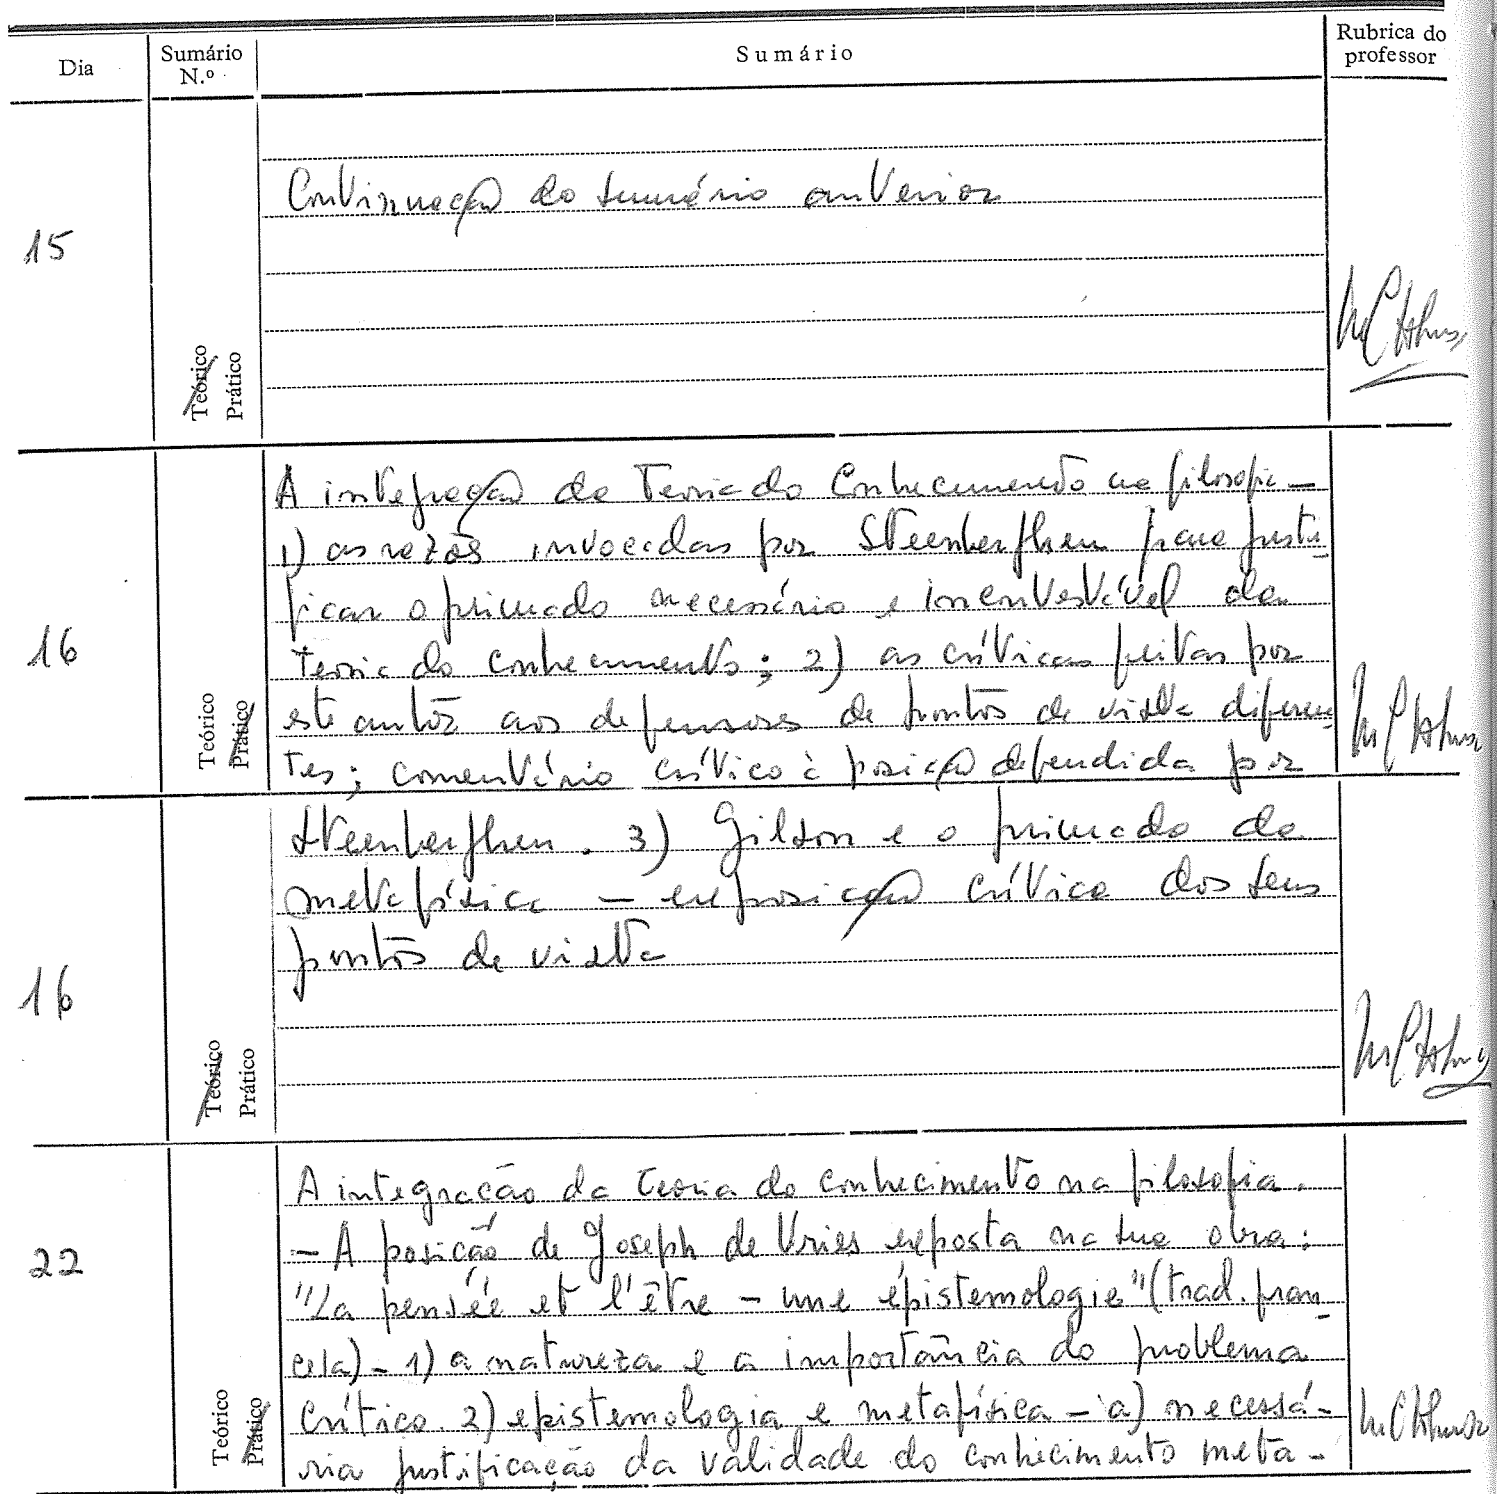 Dia
Sumário
N.º
Sumário
Rubrica do
professor
15
Teórico
Prático
Continuação do sumário anterior
16
Teórico
Prático
A integração da Teoria do Conhecimento na filosofia –
1) as razões invocadas por Steenberghen para justi-
ficar o primado necessário e incontestável da
teoria do conhecimento; 2) as críticas feitas por
este autor aos defensores de pontos de vista diferen-
tes; comentário crítico à posição defendida por
16
Teórico
Prático
Steenberghen. 3) Gilson e o primado da
metafísica – exposição crítica dos seus
pontos de vista
22
Teórico
Prático
A integração da teoria do conhecimento na filosofia.
– A posição de Joseph de Vries exposta na sua obra:
"La pensée et l'être – une épistemologie" (trad. fran-
cesa) – 1) a natureza e a importância do problema
crítico. 2) epistemologia e metafísica – a) necessá-
ria justificação da validade do conhecimento meta-